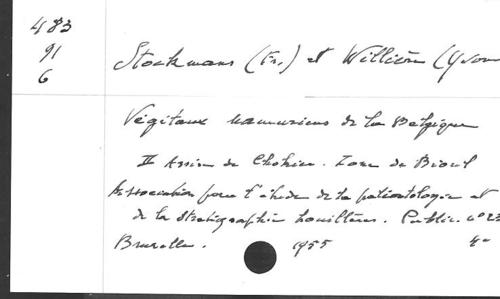 483
91
6
Stockmans (Fr.) et Willière (Yvon
Végétaux namuriens de la Belgique
II Assise de Chokier. Zone de Bioul
Association pour l'étude de la paléontologie et
de la stratigraphie houillères. Public. n° 23
Bruxelles. 1955 4°